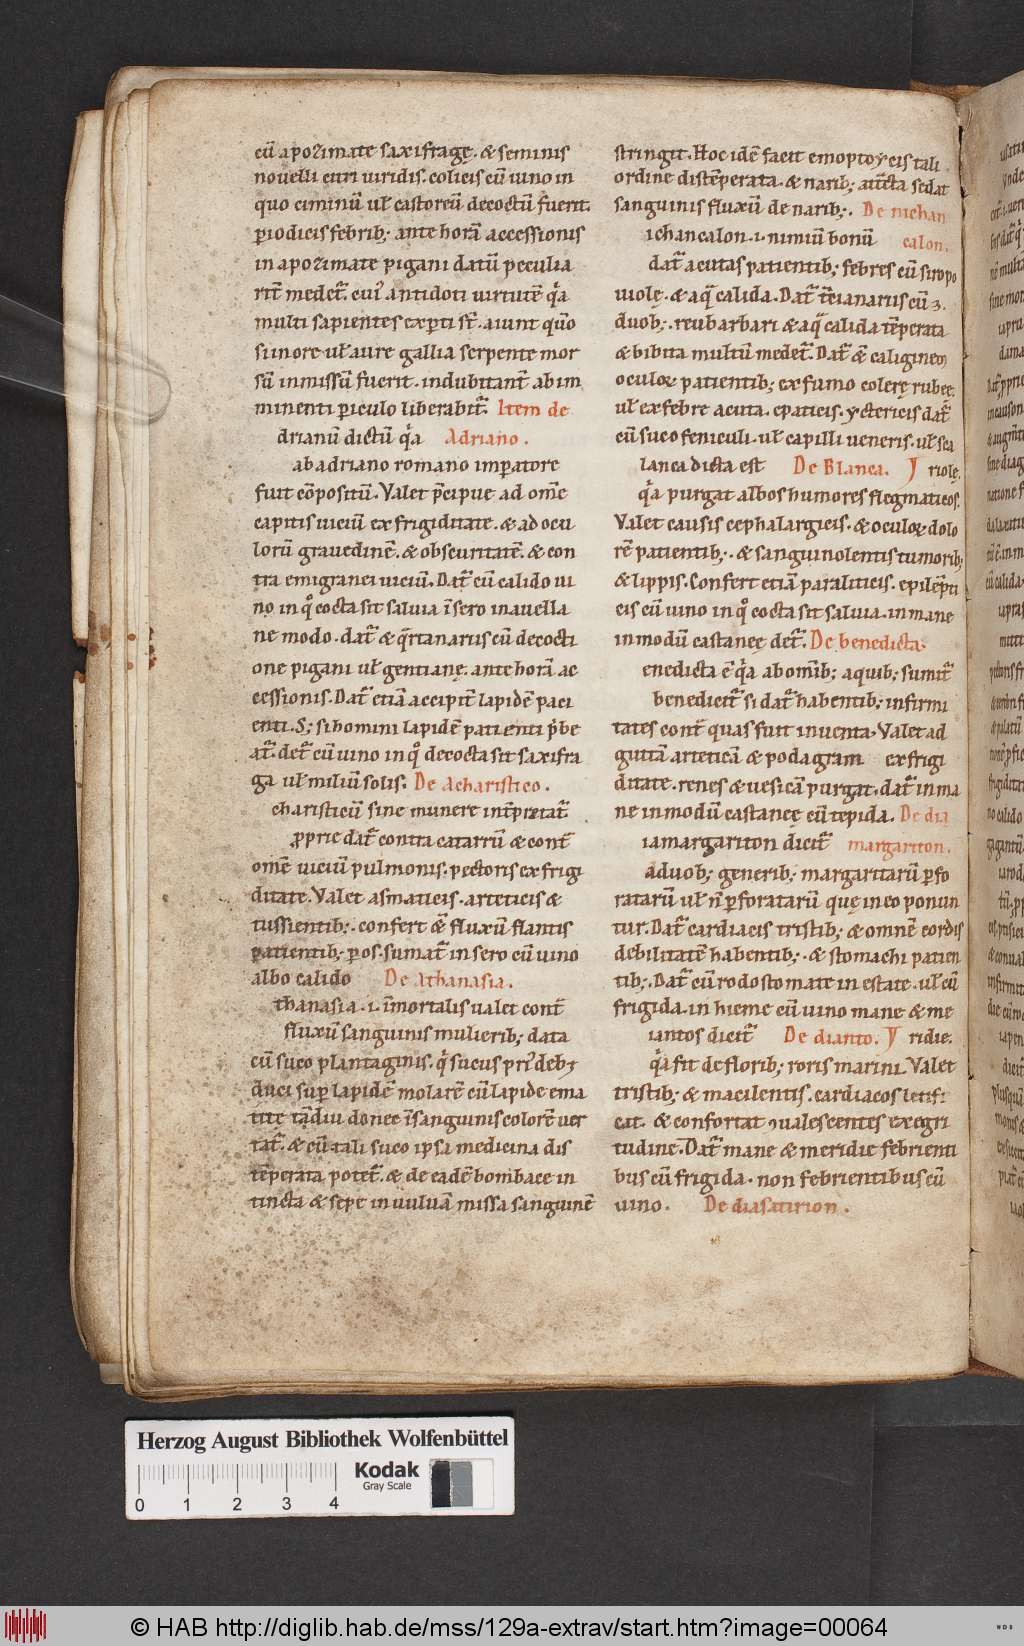 cū apozimate saxifragę. & seminis
nouelli citri uiridis. colicis cū uino in
quo ciminū ul̄ castoreū decoctū fuerit.
ꝑiodicis febrib; ante horā accessionis
in apozimate pigani datū peculia
rit̄ medet᷑. cui᷒ antidoti uirtutē q̄a
multi sapientes exꝑti st̄. aiunt quō
si in ore ul̄ aure gallia serpente mor
sū inmissū fuerit. indubitant̄ ab im
minenti ꝑiculo liberabit᷑. Item de
drianū dictū q̄a Adriano.
ab adriano romano imꝑatore
fuit cōpositū. Valet p̄cipue ad om̄e
capitis uiciū ex frigiditate. & ad ocu
lorū grauedinē. & obscuritatē. & con
tra emigranei uiciū. Dat᷑ cū calido ui
no in qͦ cocta sit saluia ī sero in auella
ne modo. dat᷑ & q̄rtanariis cū decocti
one pigani ul̄ gentianę. ante horā ac
cessionis. Dat᷑ etiā accipit̄ lapidē paci
enti. S; si homini lapidē patienti p̄be
at᷑. det᷑ cū uino in qͦ decocta sit saxifra
ga ul̄ miliū solis. De Acharistico.
charisticū sine munere int̄pretat᷑.
ꝓprie dat᷑ contra catarrū & cont̄
omē uiciū pulmonis. pectoris ex frigi
ditate. Valet asmaticis. arteticis &
tussientib;. confert & fluxū flantis
patientib; ꝑ os. sumat᷑ in sero cū uino
albo calido De Athanasia.
thanasia .i. īmortalis ualet cont̄
fluxū sanguinis mulierib; data
cū suco plantaginis. q̄ sucus pri᷒ deb;
duci suꝑ lapidē molarē cū lapide ema
tite tādiu donec ī sanguinis colorē uer
tat᷑. & cū tali suco ipsa medicina dis
tēperata potet᷑. & de eadē bombace in
tincta & sepe in uuluā missa sanguinē
stringit. Hoc idē facit emoptoycis tali
ordine distēperata. & narib; aūcta sedat
sanguinis fluxū de narib;. De nichan
ichancalon .i. nimiū bonū calon.
dat᷑ acutas patientib; febres cū siropo
uiolę. & aq̄ calida. Dat᷑ t̄cianariis cū ʒ.
duob;. reubarbari & aq̄ calida tēperata
& bibita multū medet᷑. Dat᷑ & caliginem
oculoꝝ patientib; ex fumo colerę rubee.
ul̄ ex febre acuta. epaticis. yctericis dat᷑
cū suco feniculi. ul̄ capilli ueneris. ul̄ sca
lanca dicta est De Blanca. riolę.
q̄a purgat albos humores flegmaticos.
Valet causis cephalargicis. & oculoꝝ dolo
rē patientib;. & sanguinolentis tumorib;
& lippis. Confert etiā paraliticis. epilēpti
cis cū uino in qͦ cocta sit saluia. in mane
in modū castaneę det᷑. De benedicta.
enedicta ē q̄a ab omīb; a quib; sumit᷑
benedicit᷑ si dat᷑ habentib; infirmi
tates cont̄ quas fuit inuenta. Valet ad
gutā arteticā & podagram ex frigi
ditate. renes & uesicā purgat. dat᷑ in ma
ne in modū castaneę cū tepida. De dia
iamargariton dicit᷑ margariton.
a duob; generib; margaritarū ꝑfo
ratarū ul̄ n̄ ꝑforatarū que in eo ponun
tur. Dat᷑ cardiacis tristib; & omnē cordis
debilitatē habentib;. & stomachi patien
tib;. Dat᷑ cū rodostomate in estate. ul̄ cū
frigida. in hieme cū uino mane & me
iantos dicit᷑ De dianto. ridie.
q̄a fit de florib; roris marini. Valet
tristib; & macilentis. cardiacos letifi
cat. & confortat ꝯualescentes ex egri
tudine. Dat᷑ mane & meridie febrienti
bus cū frigida. non febrientibus cū
uino. De diasatirion.
Herzog August Bibliothek Wolfenbüttel
Kodak
Gray Scale
0 1 2 3 4
© HAB http://diglib.hab.de/mss/129a-extrav/start.htm?image=00064